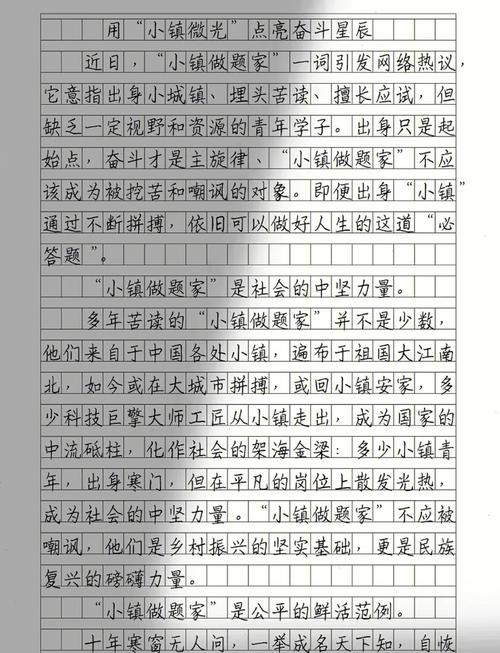 用“小镇微光”点亮奋斗星辰
近日，“小镇做题家”一词引发网络热议，
它意指出身小城镇、埋头苦读、擅长应试，但
缺乏一定视野和资源的青年学子。出身只是起
始点，奋斗才是主旋律、“小镇做题家”不应
该成为被挖苦和嘲讽的对象。即便出身“小镇”
通过不断拼搏，依旧可以做好人生的这道“必
答题”。
“小镇做题家”是社会的中坚力量。
多年苦读的“小镇做题家”并不是少数，
他们来自于中国各处小镇，遍布于祖国大江南
北，如今或在大城市拼搏，或回小镇安家，多
少科技巨擎大师工匠从小镇走出，成为国家的
中流砥柱，化作社会的架海金梁：多少小镇青
年，出身寒门，但在平凡的岗位上散发光热，
成为社会的中坚力量。“小镇做题家”不应被
嘲讽，他们是乡村振兴的坚实基础，更是民族
复兴的磅礴力量。
“小镇做题家”是公平的鲜活范例。
十年寒窗无人问，一举成名天下知，自恢